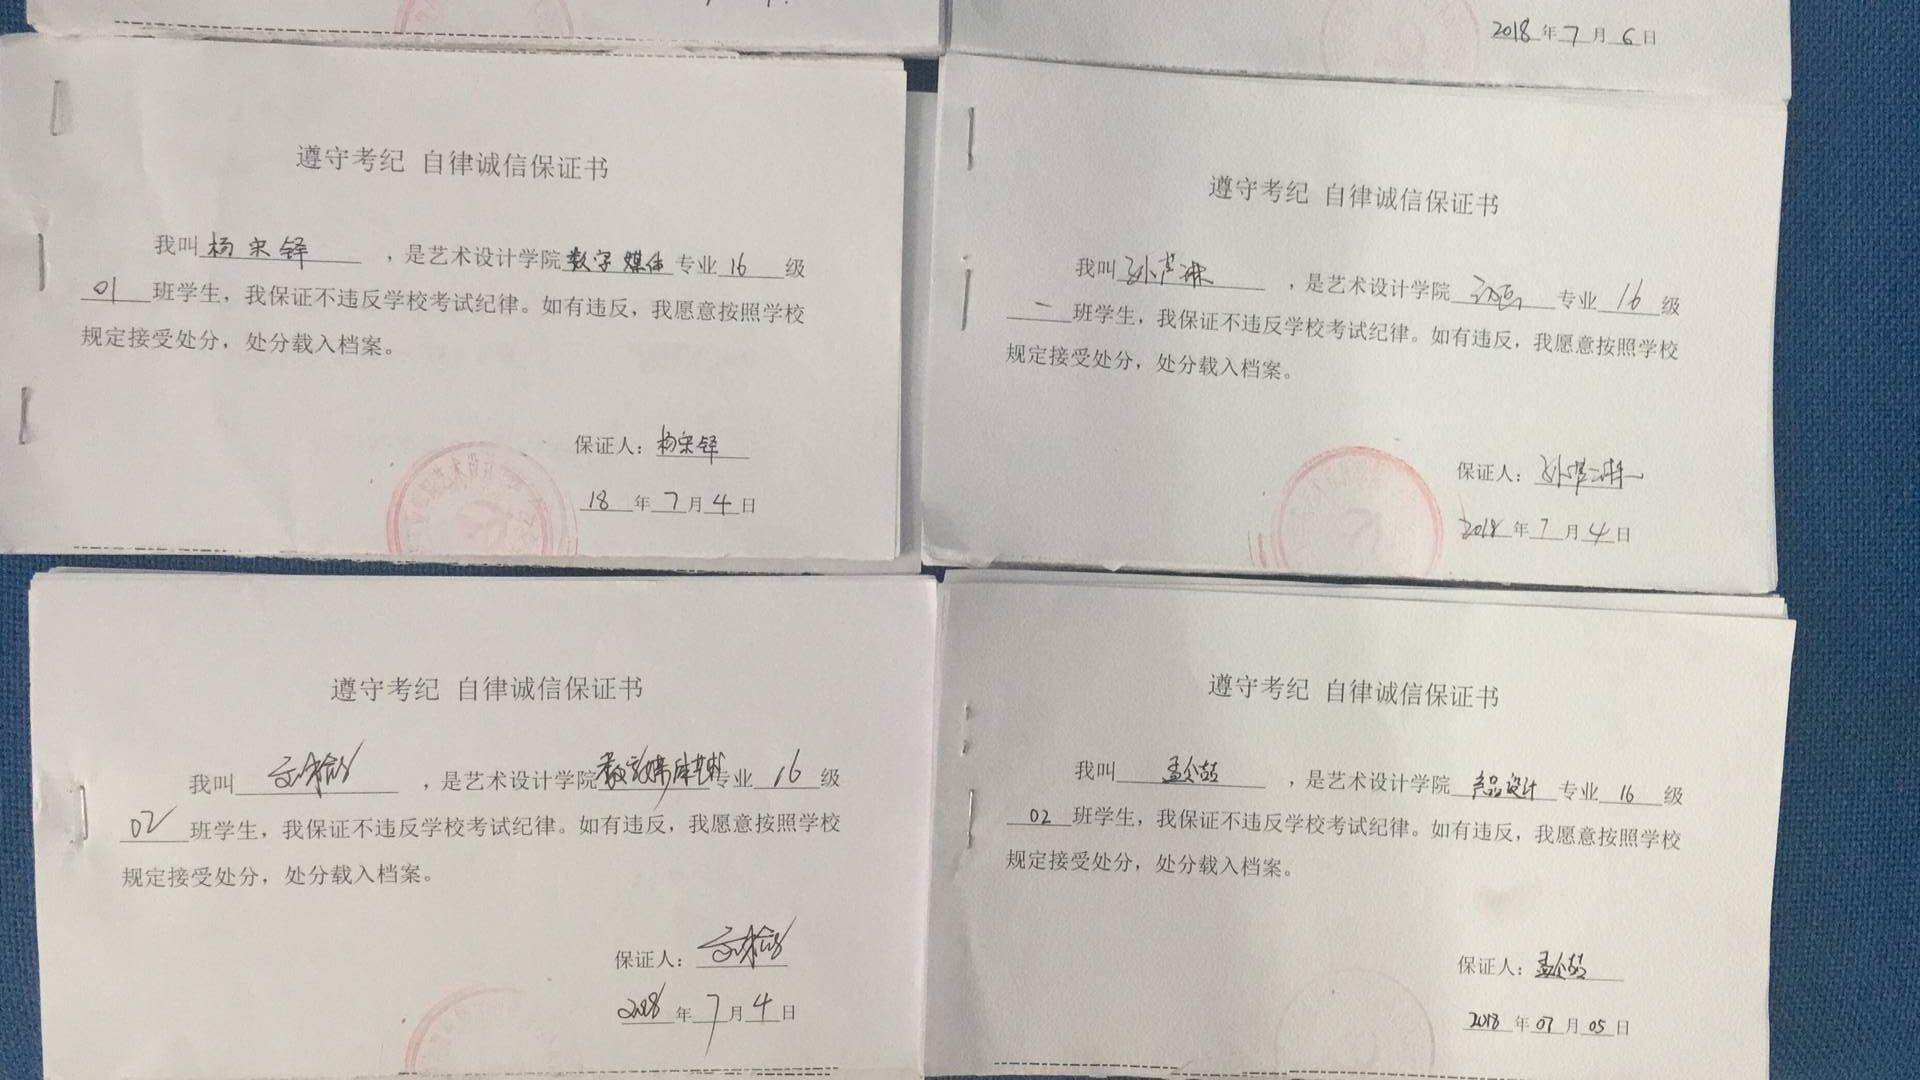 2018年7月6日
遵守考纪 自律诚信保证书
我叫杨宋铎，是艺术设计学院数字媒体专业16级
01班学生，我保证不违反学校考试纪律。如有违反，我愿意按照学校
规定接受处分，处分载入档案。
保证人：杨宋铎
18年7月4日
遵守考纪 自律诚信保证书
我叫，是艺术设计学院专业16级
一班学生，我保证不违反学校考试纪律。如有违反，我愿意按照学校
规定接受处分，处分载入档案。
保证人：
2018年7月4日
遵守考纪 自律诚信保证书
我叫，是艺术设计学院专业16级
02班学生，我保证不违反学校考试纪律。如有违反，我愿意按照学校
规定接受处分，处分载入档案。
保证人：
2018年7月4日
遵守考纪 自律诚信保证书
我叫，是艺术设计学院产品设计专业16级
02班学生，我保证不违反学校考试纪律。如有违反，我愿意按照学校
规定接受处分，处分载入档案。
保证人：
2018年07月05日